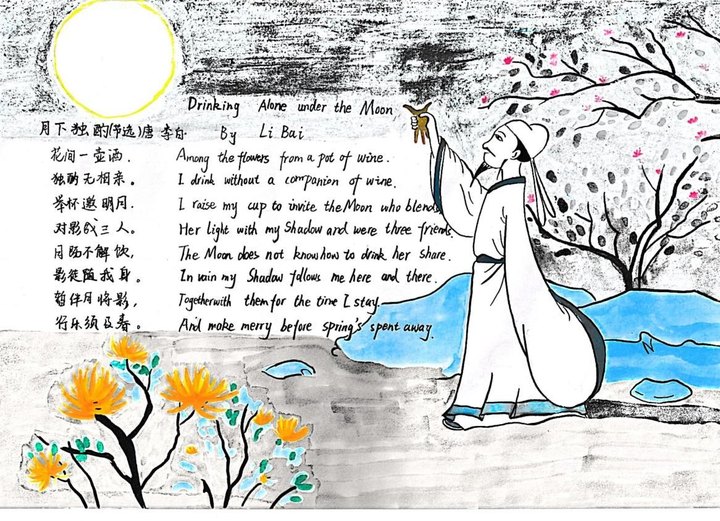 Drinking Alone under the Moon
月下独酌(节选)唐 李白 By Li Bai
花间一壶酒. Among the flowers from a pot of wine.
独酌无相亲。 I drink without a companion of wine.
举杯邀明月. I raise my cup to invite the Moon who blends
对影成三人。 Her light with my Shadow and were three friends.
月既不解饮, The Moon does not know how to drink her share.
影徒随我身。 In vain my Shadow follows me here and there.
暂伴月将影, Together with them for the time I stay.
行乐须及春。 And make merry before spring's spent away.